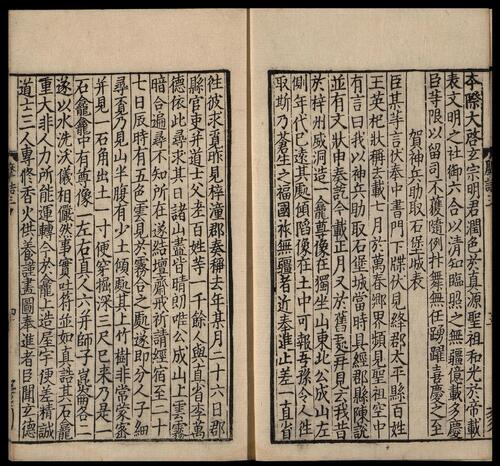 本際大啓玄宗明君潤色於真源聖祖和光於帝載
表文明之社御六合以清知臨照之無疆億載多慶
臣等限以留司不獲隨例抃舞無任踴躍喜慶之至
賀神兵助取石堡城表
臣某等言伏奉中書門下牒伏見絳郡太平縣百姓
王英杞狀稱去載七月於萬春鄉界頻見聖祖空中
有言曰我以神兵助取石堡城當時具經郡縣陳説
並有文狀申奏訖今載正月又於舊處再見云我昔
於梓州威洞造一龕尊像今獨坐山東北公成山南
側年代已遠其龕傾陷像在土中可報吾孫令人往
取斯乃蒼生之福國祚無疆者近奏進止差一直省
往彼求覓昨見梓潼郡奏稱去年某月二十六日郡
縣官吏并道士父老百姓等一千餘人與直省李萬
德依此尋求其日諸山盡皆晴朗唯公成山上雲霧
暗合遍尋不知所在遂結壇齋戒祈請經宿至二十
七日辰時有五色雲見於霧合之處遂即分人子細
尋覓乃見山半腹有少土傾處其上竹樹非常蒙密
并見一石角出土一寸便穿掘深三尺已來乃是一
石龕龕中有尊像一左右真人六并師子崑崙各二
遂以水洗沃儀相儼然事實吐符並如真誥其石龕
重大非人力所能運轉今於龕上造屋宇便差精誠
道士二人專修香火供養謹畫圖奉進者臣聞玄德